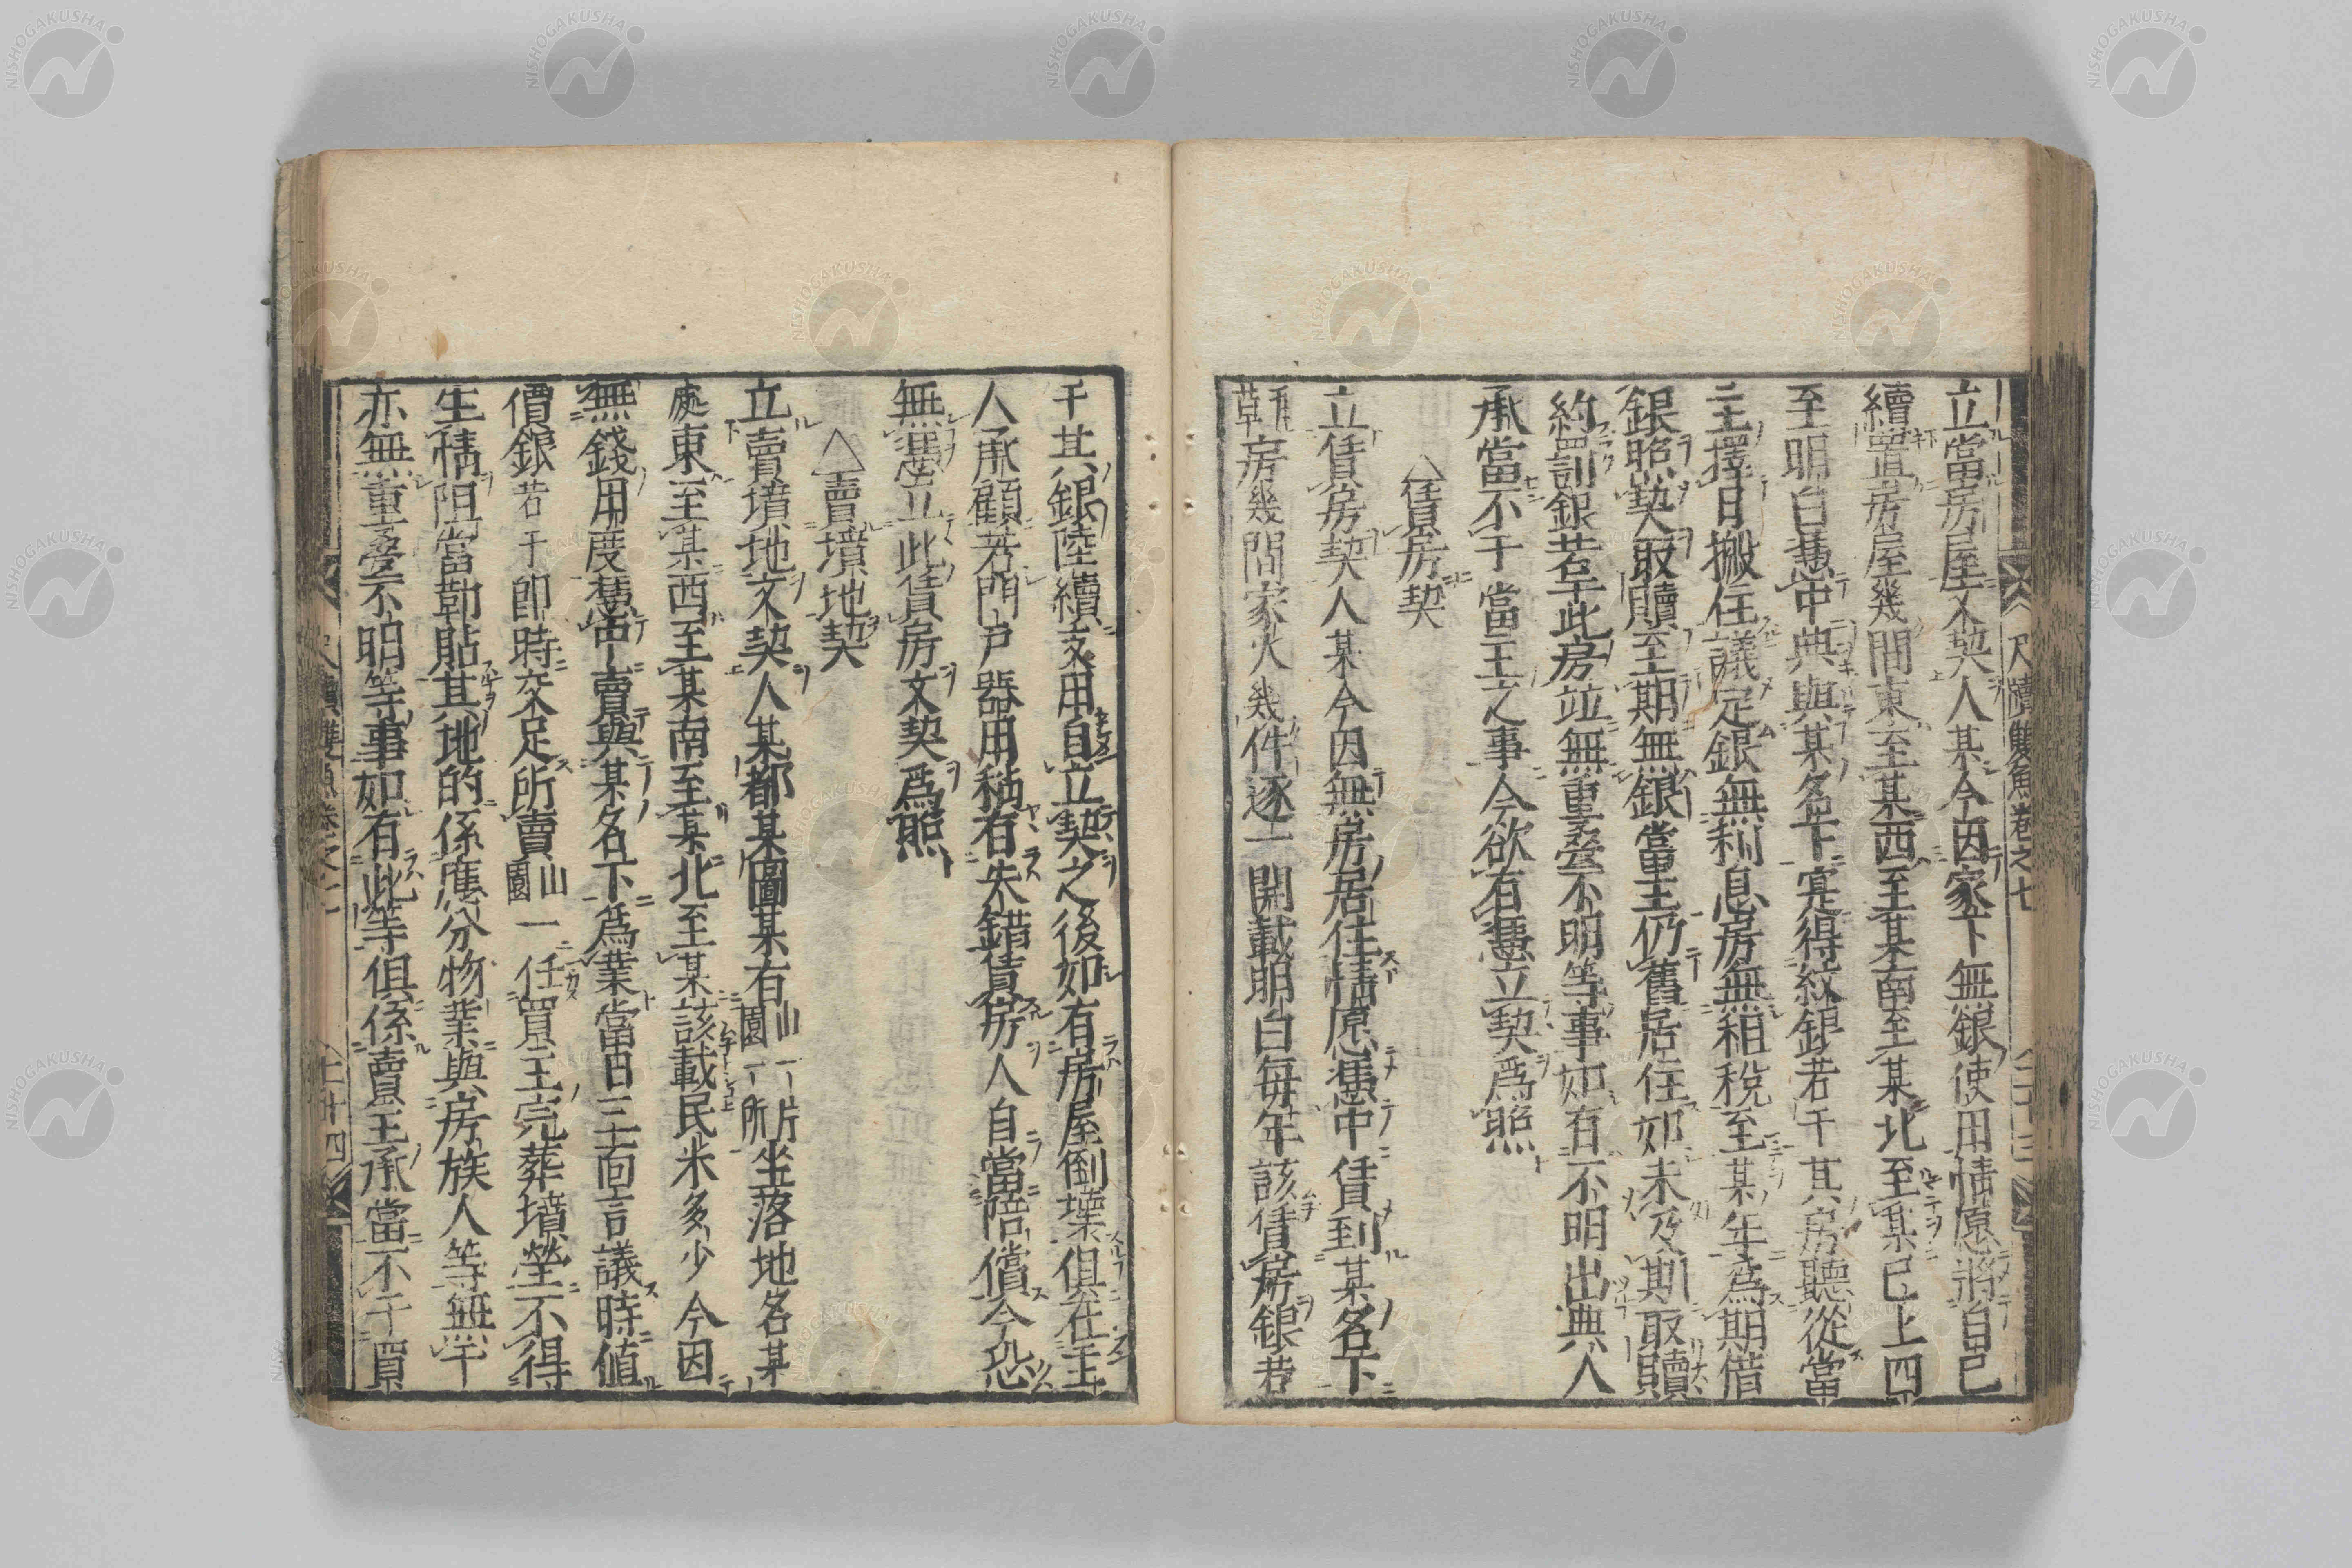 尺牘雙魚卷之七
立當房屋文契人某今因家下無銀使用情愿將自己
續置房屋幾間東至某西至某南至某北至某已上四
至明白慿中典與某名下寔得紋銀若干其房聽從當
主擇日搬住議定銀無利息房無租稅至某年爲期借
銀照契取贖至期無銀當主仍舊居住如未及期取贖
約罰銀若干此房竝無重疊不明等事如有不明出典人
承當不干當主之事今欲有慿立契爲照
△賃房契
立賃房契人某今因無房居住情愿慿中賃到某名下
房幾間家火幾件逐一開載明白每年該賃房銀若
干其銀陸續支用自立契之後如有房屋倒壞俱在主
人承顧若門戶器用稍有失錯賃房人自當陪償今恐
無慿立此賃房文契爲照
△賣墳地契
立賣墳地文契人某都某圖某有山園一片一所坐落地名某
處東至某西至某南至某北至某該載民米多少今因
無錢用度慿中賣與某名下爲業當日三面言議時値
價銀若干即時交足所賣山園一任買主完葬墳塋不得
生情阻當勒貼其地的係應分物業與房族人等無干
亦無重疊不明等事如有此等俱係賣主承當不干買
NISHOGAKUSHA